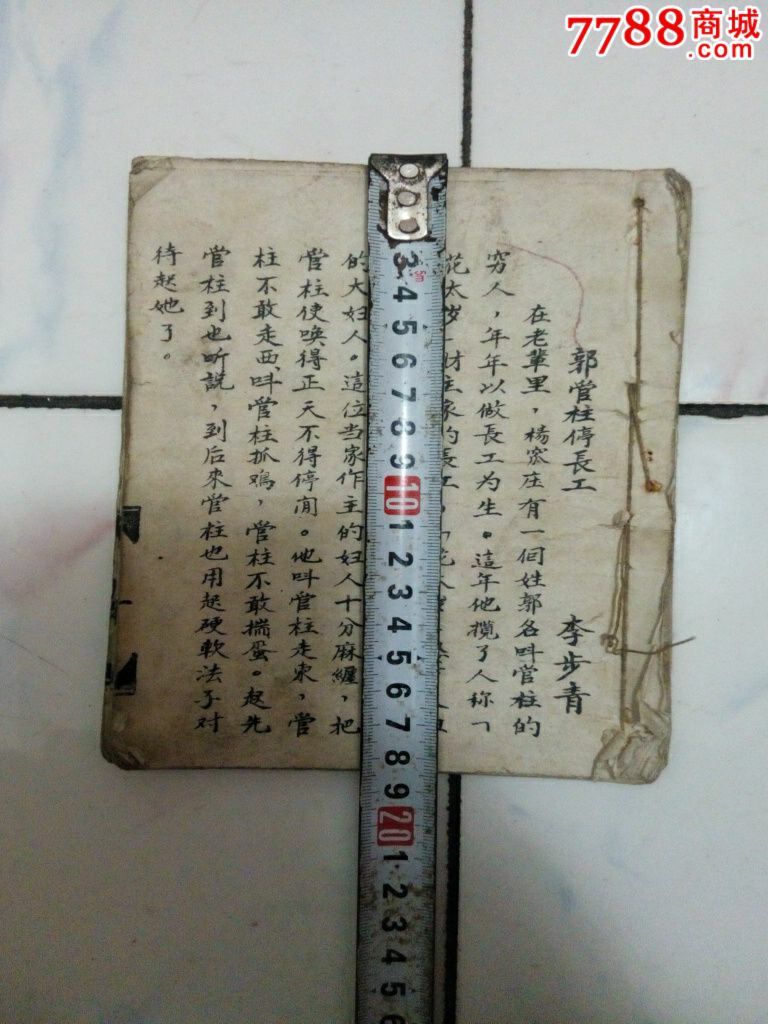 7788商城
.com
郭管柱停長工
李步青
在老輩里，楊窊庄有一個姓郭名呌管柱的
穷人，年年以做長工为生。這年他攬了人称「
花太岁」財主家的長工，「花太
的大妇人。這位当家作主的妇人十分麻纏，把
管柱使唤得正天不得停閒。他呌管柱走東，管
柱不敢走西，呌管柱抓鳮，管柱不敢揣蛋。起先
管柱到也听說，到后來管柱也用起硬軟法子对
待起她了。
3 4 5 6 7 8 9 10 1 2 3 4 5 6 7 8 9 20 1 2 3 4 5 6